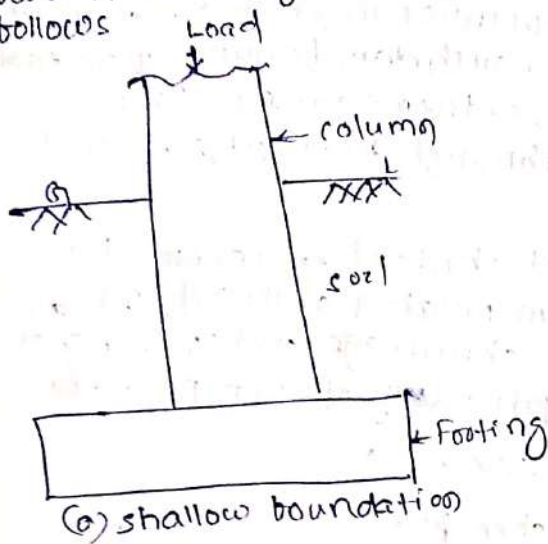 bollows
Load
column
G
L
soil
Footing
(a) shallow boundation